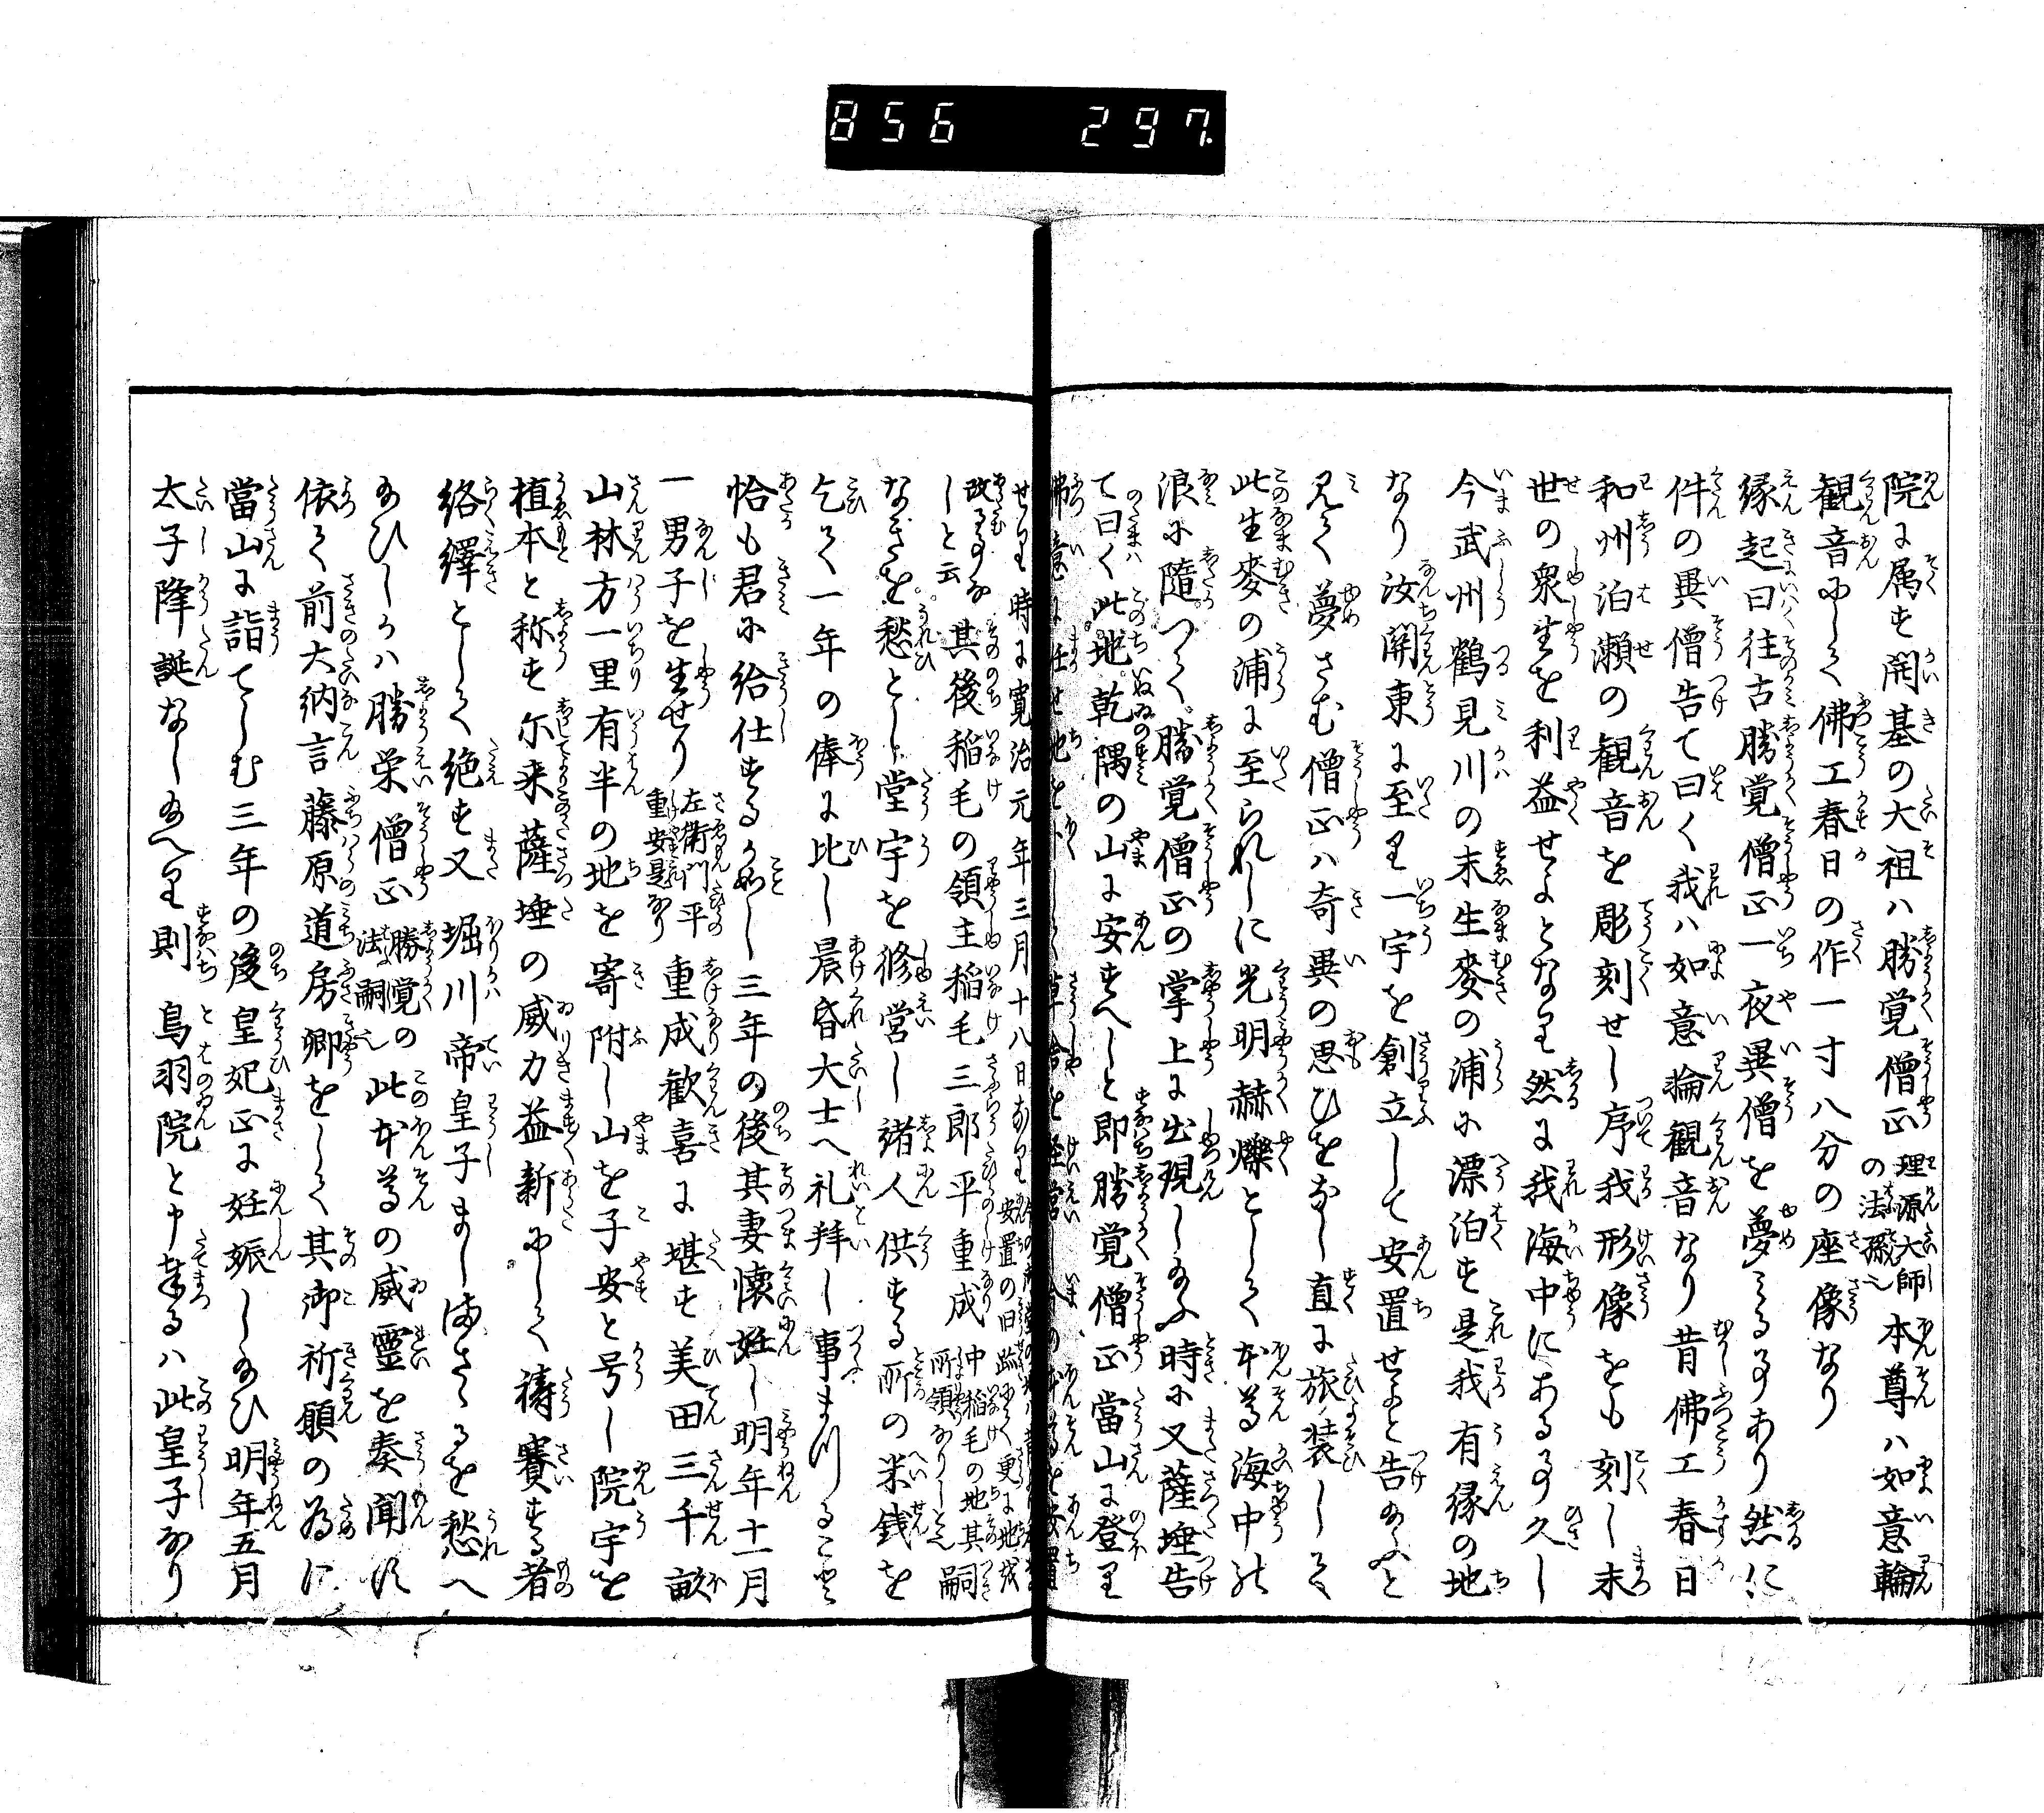 856 297
院に属す開基の大祖ハ勝覚僧正理源大師の法孫也本尊ハ如意輪
観音にして佛工春日の作一寸八分の座像なり
縁起曰往古勝覚僧正一夜異僧を夢ミる事あり然に
件の異僧告て曰く我ハ如意輪観音なり昔佛工春日
和州泊瀬の観音を彫刻せし序我形像をも刻し末
世の衆生を利益せよとなり然に我海中にある事久し
今武州鶴見川の末生麥の浦に漂泊す是我有縁の地
なり汝関東に至り一宇を創立して安置せよと告給ふと
見て夢さむ僧正ハ奇異の思ひをなし直に旅装して
此生麥の浦に至られしに光明赫爍として本尊海中の
浪に随つて勝覚僧正の掌上に出現し給ふ時に又薩埵告
て曰く此地乾隅の山に安すへしと即勝覚僧正當山に登り
佛意に任せ地を草舎を経営し今の本尊を安置
せり時に寛治元年三月十八日なり安置の旧跡にして更に地を
改むる事なしと云其後稲毛の領主稲毛三郎平重成中稲毛の地其嗣所領なりしと云嗣
なきを愁とし堂宇を修営し諸人供する所の米銭を
乞て一年の俸に比し晨昏大士へ礼拝し事まつること
恰も君に給仕するか如し三年の後其妻懐妊し明年十一月
一男子を生せり左衛門平重安是なり重成歓喜に堪す美田三千畝
山林方一里有半の地を寄附し山を子安と号し院宇を
植本と称す尓来薩埵の威力益新にして祷賽する者
絡繹として絶す又堀川帝皇子ましまさゝるを愁へ
給ひしかハ勝栄僧正勝覚の法嗣也此本尊の威霊を奏聞に
依て前大納言藤原道房卿をして其御祈願の為に
當山に詣てしむ三年の後皇妃正に妊娠し給ひ明年五月
太子降誕なし給へり則鳥羽院と申奉るハ此皇子なり